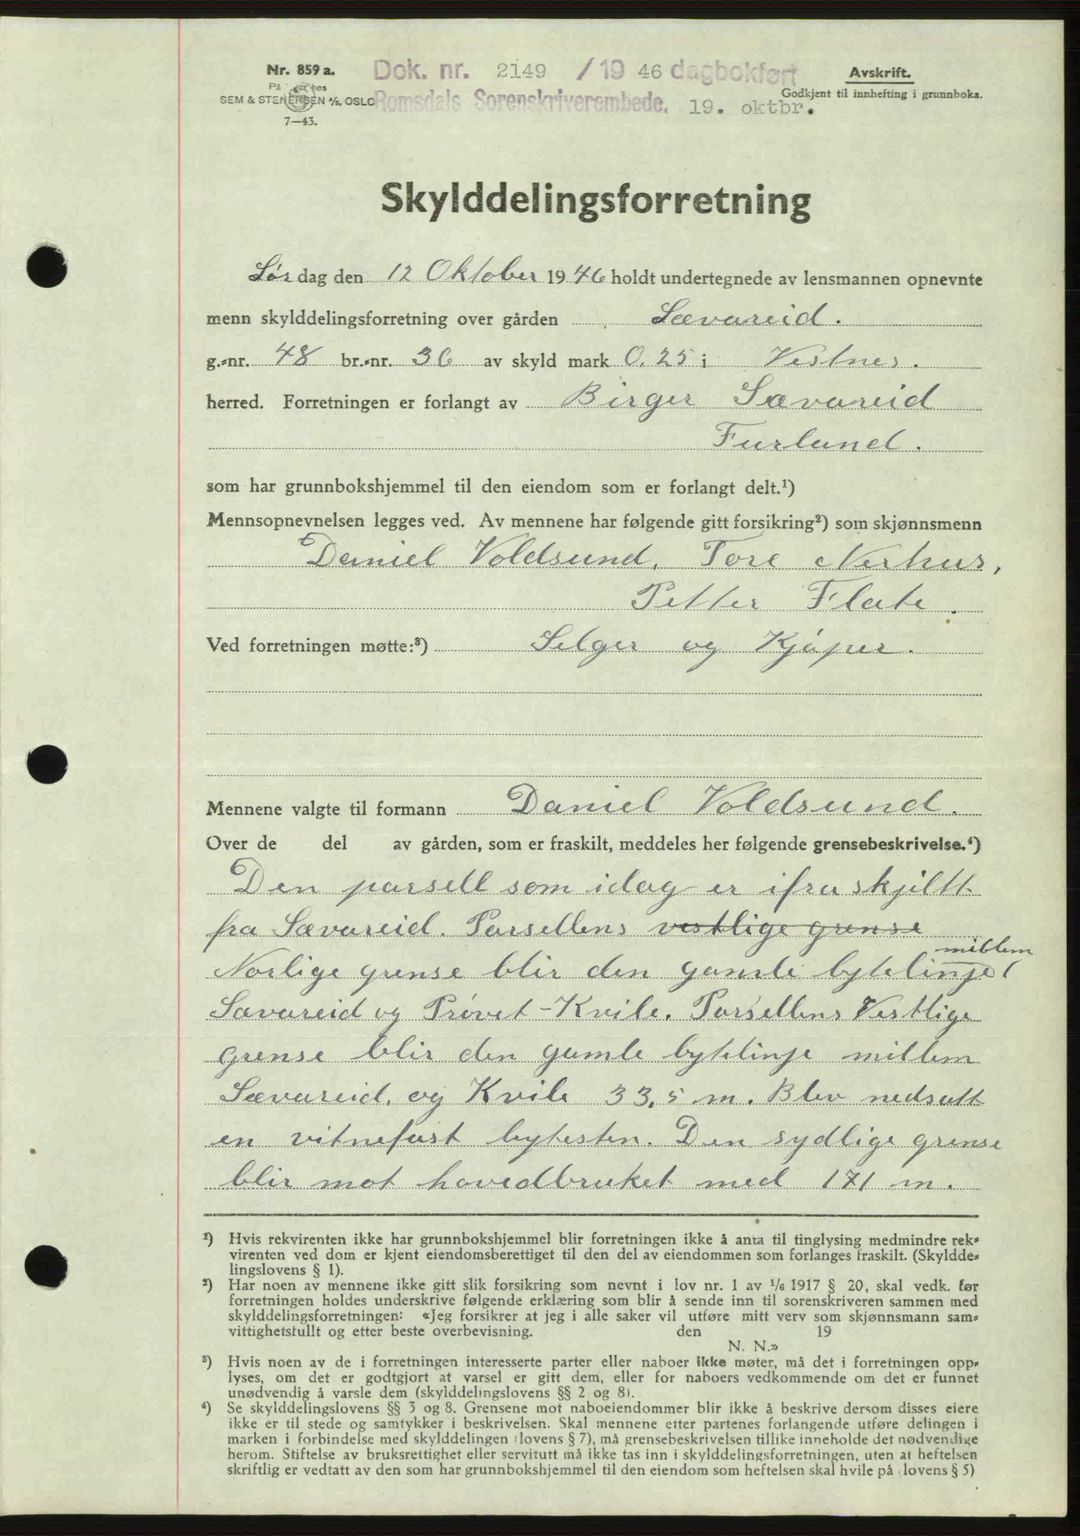 Nr. 859 a.
Dok. nr. 2149 /19 46 dagbokført
Avskrift.
SEM & STENERSEN A/S, OSLO
Romsdals Sorenskriverembede. 19. oktbr.
Godkjent til innhefting i grunnboka.
7—43.
Skylddelingsforretning
Lørdag den 12 Oktober 1946 holdt undertegnede av lensmannen opnevnte
menn skylddelingsforretning over gården Sævareid.
g.-nr. 48 br.-nr. 36 av skyld mark 0.25 i Vestnes.
herred. Forretningen er forlangt av Birger Sævareid
Furlund.
som har grunnbokshjemmel til den eiendom som er forlangt delt.¹)
Mennsopnevnelsen legges ved. Av mennene har følgende gitt forsikring²) som skjønnsmenn
Daniel Voldsund, Tore Nerhus,
Petter Flate.
Ved forretningen møtte:³) Selger og Kjøper.
Mennene valgte til formann Daniel Voldsund.
Over de del av gården, som er fraskilt, meddeles her følgende grensebeskrivelse.⁴)
Den parsell som idag er ifra skjiltt
fra Sævareid. Parsellens vestlige grense
Norlige grense blir den gamle bytelinje millem
Sævareid og Prøvet-Kvile. Parsellens Vestlige
grense blir den gamle bytelinje millem
Sævareid, og Kvile 33,5 m. Blev nedsatt
en vitnefast bytesten. Den sydlige grense
blir mot hovedbruket med 171 m.
¹) Hvis rekvirenten ikke har grunnbokshjemmel blir forretningen ikke å anta til tinglysing medmindre rek-
virenten ved dom er kjent eiendomsberettiget til den del av eiendommen som forlanges fraskilt. (Skyldde-
lingslovens § 1).
²) Har noen av mennene ikke gitt slik forsikring som nevnt i lov nr. 1 av 1/6 1917 § 20, skal vedk. før
forretningen holdes underskrive følgende erklæring som blir å sende inn til sorenskriveren sammen med
skylddelingsforretningen: «Jeg forsikrer at jeg i alle saker vil utføre mitt verv som skjønnsmann sam-
vittighetstullt og etter beste overbevisning. den 19
N. N.»
³) Hvis noen av de i forretningen interesserte parter eller naboer ikke møter, må det i forretningen opp-
lyses, om det er godtgjort at varsel er gitt dem, eller for naboers vedkommende om det er funnet
unødvendig å varsle dem (skylddelingslovens §§ 2 og 8).
⁴) Se skylddelingslovens §§ 3 og 8. Grensene mot naboeiendommer blir ikke å beskrive dersom disses eiere
ikke er til stede og samtykker i beskrivelsen. Skal mennene etter partenes forlangende utføre delingen i
marken i forbindelse med skylddelingen (lovens § 7), må grensebeskrivelsen tillike inneholde det nødvendige
herom. Stiftelse av bruksrettighet eller servitutt må ikke tas inn i skylddelingsforretningen, uten at heftelsen
skriftlig er vedtatt av den som har grunnbokshjemmel til den eiendom som heftelsen skal hvile på (lovens § 5)